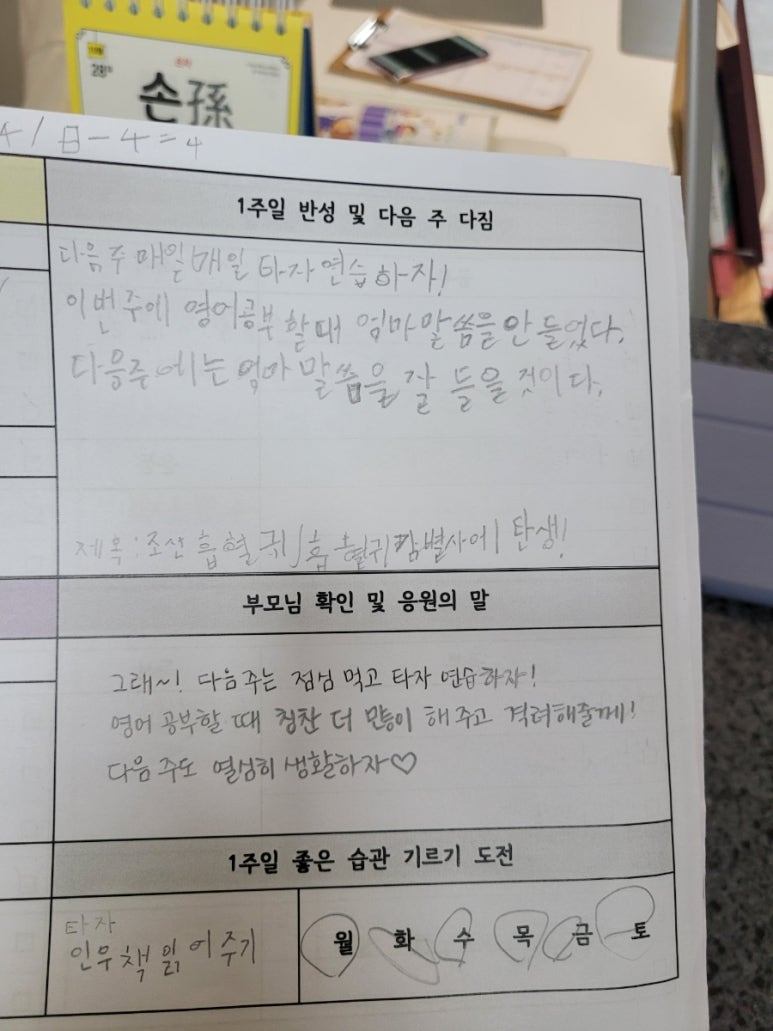 손孫
28
1 日 - 4 = 4
1주일 반성 및 다음 주 다짐
다음주 매일매일 타자연습하자!
이번주에 영어공부할때 엄마말씀을안들었다.
다음주에는 엄마 말씀을 잘 들을것이다.
제목: 조선 흡혈귀 흡혈귀감별사에 탄생!
부모님 확인 및 응원의 말
그래~! 다음주는 점심 먹고 타자 연습하자!
영어 공부할 때 칭찬 더 많이 해주고 격려해줄게!
다음 주도 열심히 생활하자♡
1주일 좋은 습관 기르기 도전
타자
인우책읽어주기
월 화 수 목 금 토